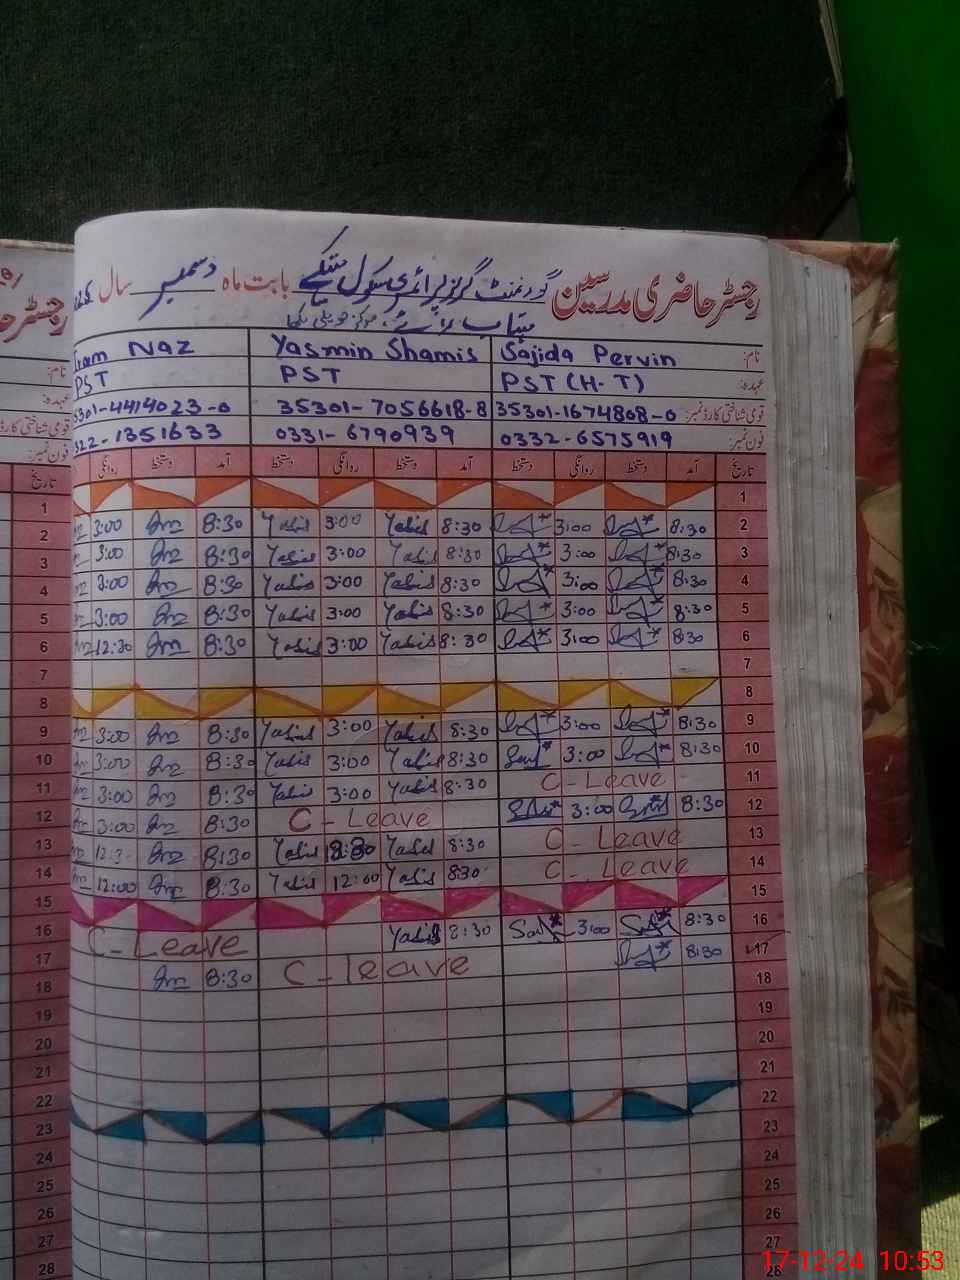 رجسٹر حاضری مدرسین گورنمنٹ گرلز پرائمری سکول بابت ماہ دسمبر سال
مرکز حویلی لکھا
نام: Sajida Pervin Yasmin Shamis Iram Naz
عہدہ: PST (H.T) PST PST
قومی شناختی کارڈ نمبر: 35301-1674808-0 35301-7056618-8 5301-4414023-0
فون نمبر: 0332-6575919 0331-6790939 322-1351633
تاریخ آمد دستخط روانگی دستخط آمد دستخط روانگی دستخط آمد دستخط روانگی
1
2 8:30 3:00 8:30 Yasis 3:00 Yasis 8:30 3:00
3 8:30 3:00 8:30 Yasis 3:00 Yasis 8:30 3:00
4 8:30 3:00 8:30 Yasis 3:00 Yasis 8:30 3:00
5 8:30 3:00 8:30 Yasis 3:00 Yasis 8:30 3:00
6 8:30 3:00 8:30 Yasis 3:00 Yasis 8:30 12:30
7
8
9 8:30 3:00 8:30 Yasis 3:00 Yasis 8:30 3:00
10 8:30 3:00 8:30 Yasis 3:00 Yasis 8:30 3:00
11 C-Leave 8:30 Yasis 3:00 Yasis 8:30 3:00
12 8:30 3:00 C-Leave 8:30 3:00
13 C-Leave 8:30 Yasis Yasis 8:30 12:3
14 C-Leave 8:30 Yasis 12:00 Yasis 8:30 12:00
15
16 8:30 3:00 8:30 Yasis C-Leave
17 8:30 C-leave 8:30
18
19
20
21
22
23
24
25
26
27
28
17-12-24 10:53